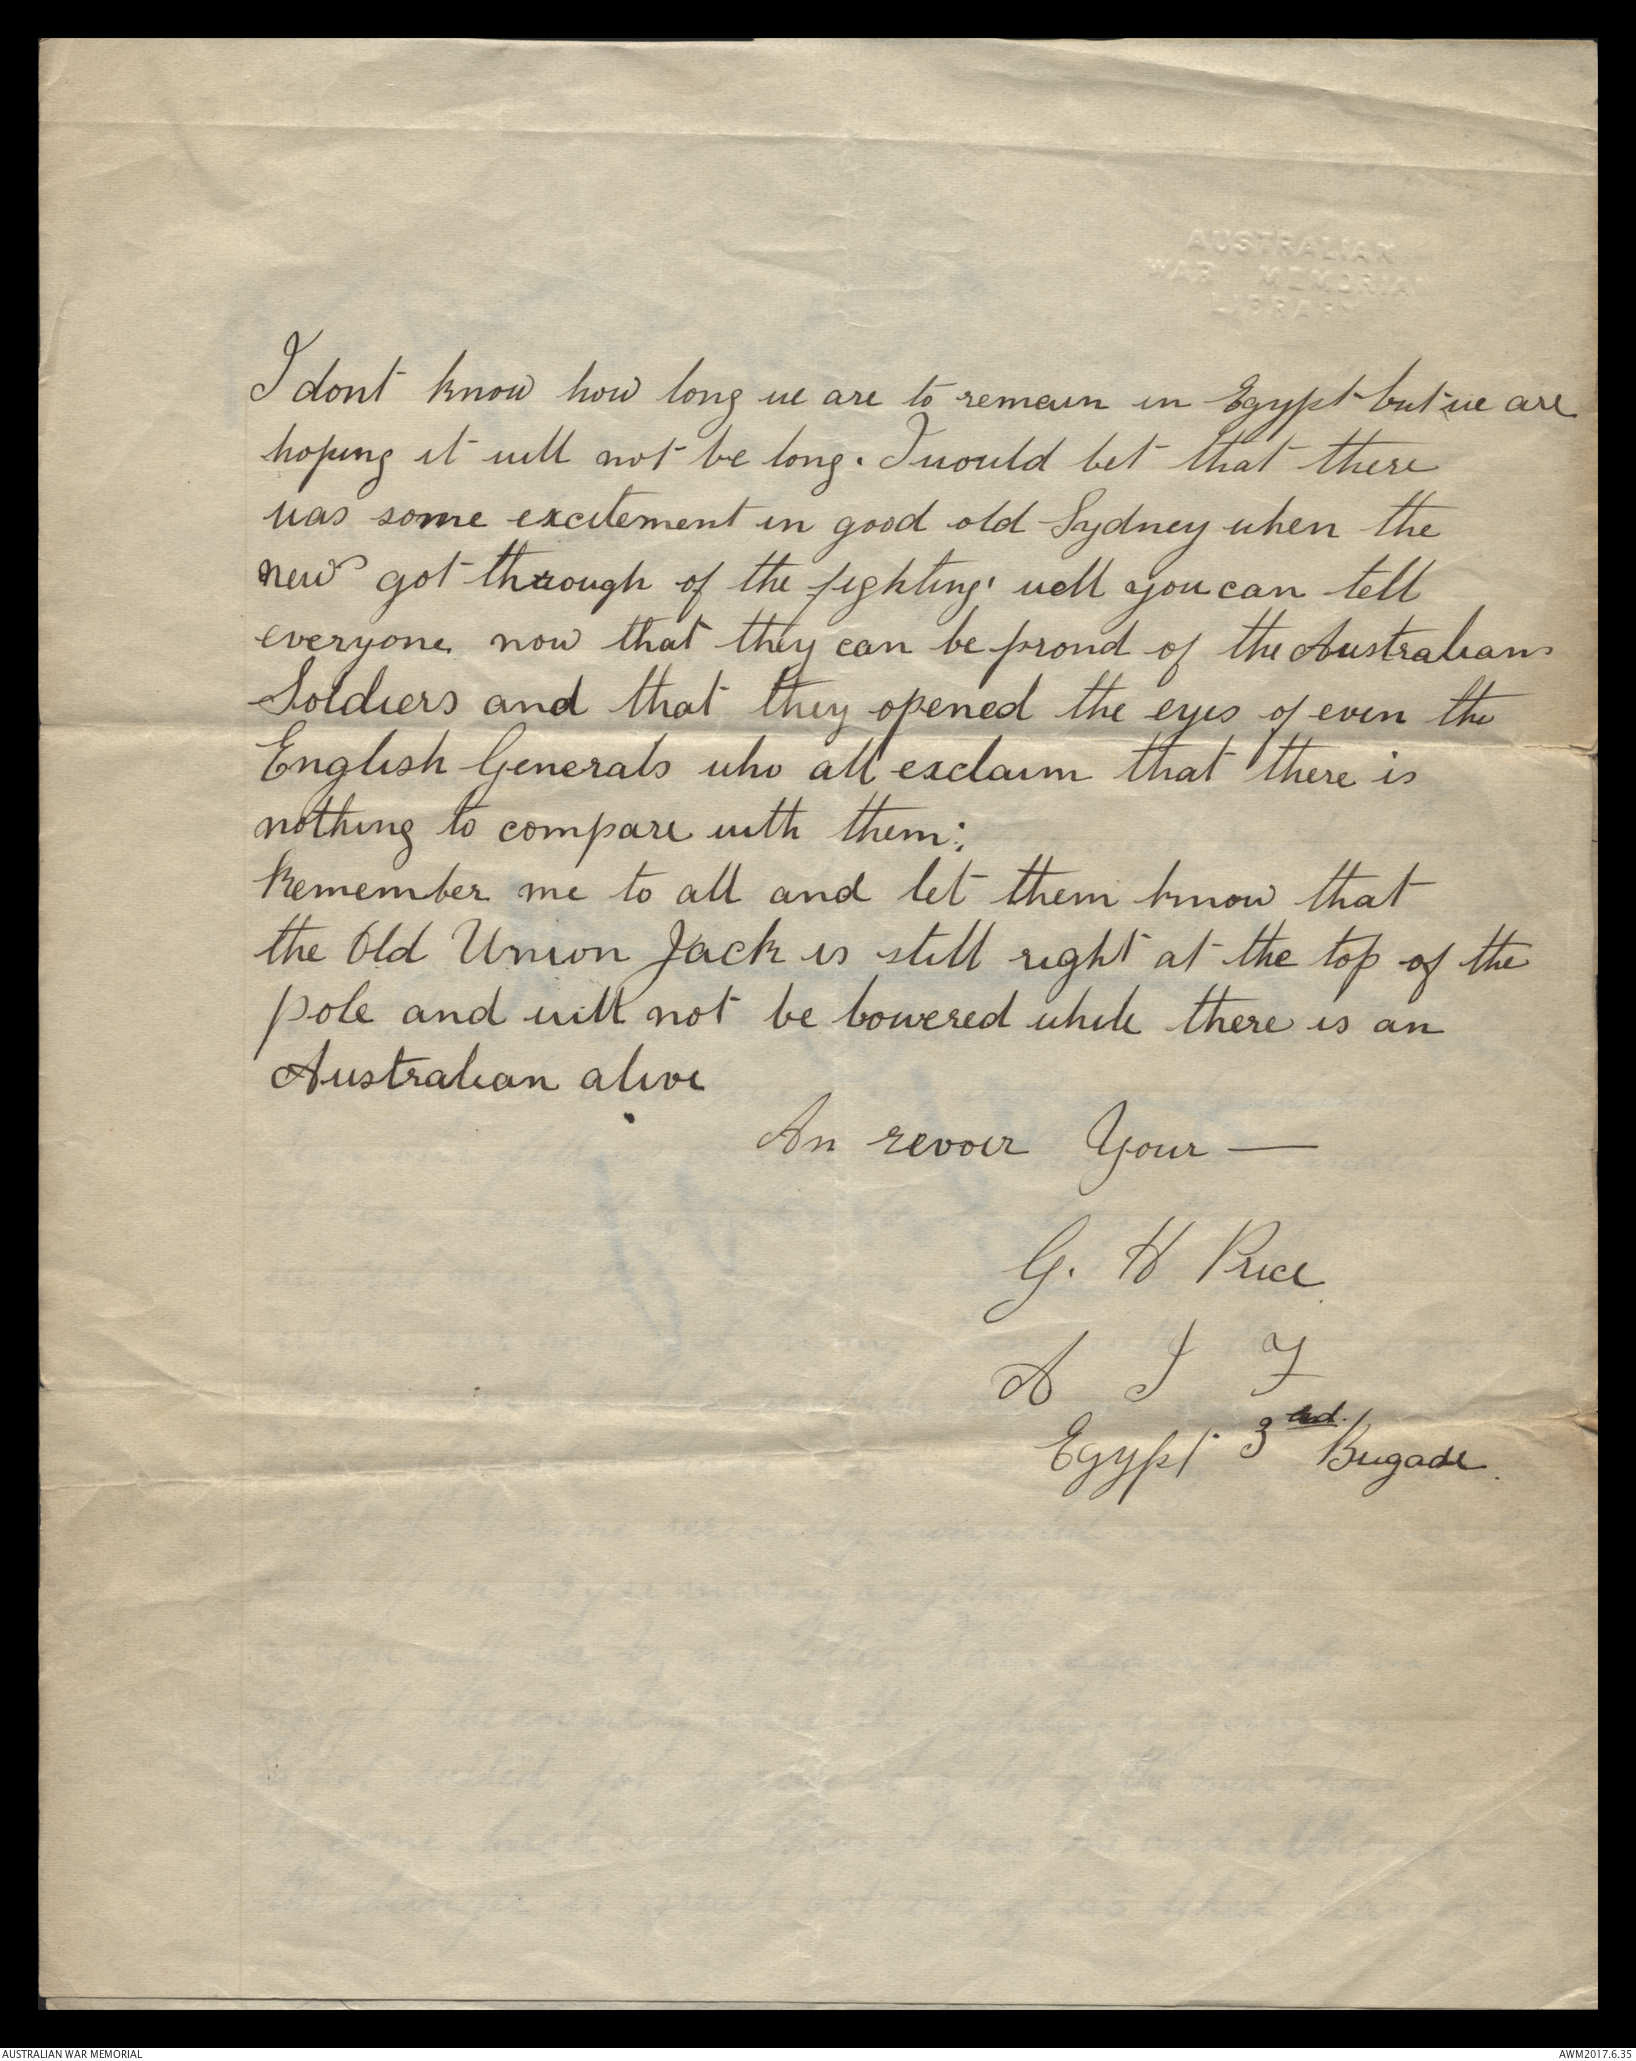 AUSTRALIAN
WAR MEMORIAL
LIBRARY
I dont know how long we are to remain in Egypt but we are
hoping it will not be long. I would bet that there
was some excitement in good old Sydney when the
news got through of the fighting' well you can tell
everyone now that they can be proud of the Australian
Soldiers and that they opened the eyes of even the
English Generals who all exclaim that there is
nothing to compare with them;
Remember me to all and let them know that
the Old Union Jack is still right at the top of the
pole and will not be lowered while there is an
Australian alive
Au revoir Your —
G. H Price
A I F
Egypt 3rd Brigade.
AUSTRALIAN WAR MEMORIAL
AWM2017.6.35